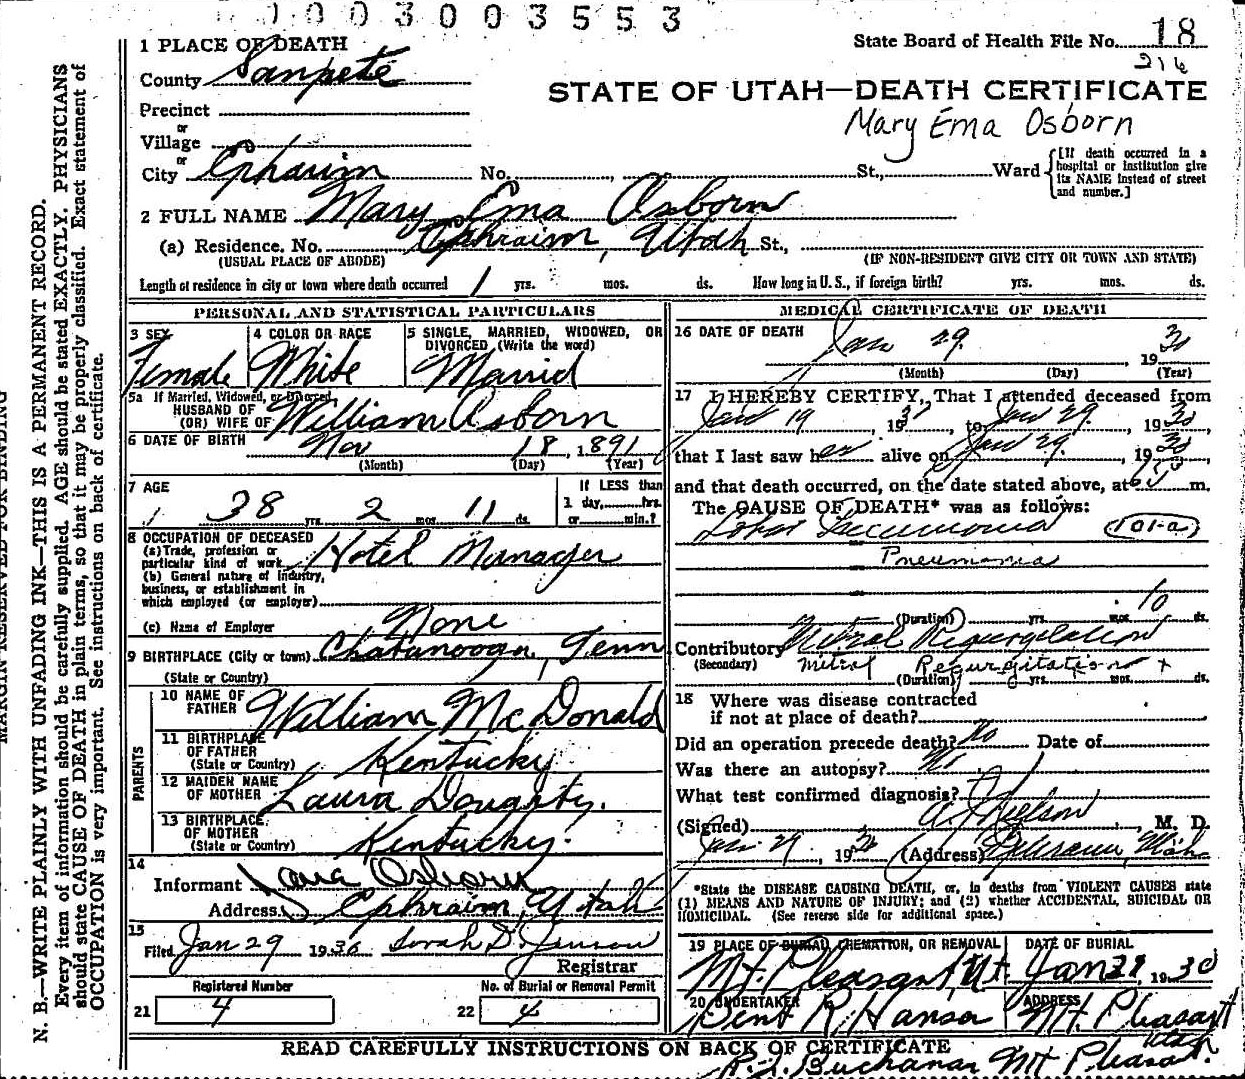 1003003553
State Board of Health File No. 18
216
1 PLACE OF DEATH
County Sanpete
STATE OF UTAH—DEATH CERTIFICATE
Precinct
Mary Ema Osborn
or
Village
or
City Ephraim No. , St., Ward [If death occurred in a hospital or institution give its NAME instead of street and number.]
2 FULL NAME Mary Ema Osborn
(a) Residence. No. Ephraim, Utah St.,
(USUAL PLACE OF ABODE) (IF NON-RESIDENT GIVE CITY OR TOWN AND STATE)
Length of residence in city or town where death occurred 1 yrs. mos. ds. How long in U. S., if foreign birth? yrs. mos. ds.
PERSONAL AND STATISTICAL PARTICULARS
3 SEX 4 COLOR OR RACE 5 SINGLE, MARRIED, WIDOWED, OR
DIVORCED (Write the word)
Female White Married
5a If Married, Widowed, or Divorced
HUSBAND OF
(OR) WIFE OF William Osborn
6 DATE OF BIRTH Nov 18, 1891
(Month) (Day) (Year)
7 AGE 38 yrs. 2 mos. 11 ds.
If LESS than
1 day, hrs.
or min.?
8 OCCUPATION OF DECEASED
(a) Trade, profession or
particular kind of work Hotel Manager
(b) General nature of Industry,
business, or establishment in
which employed (or employer)
(c) Name of Employer None
9 BIRTHPLACE (City or town) Chatanooga, Tenn
(State or Country)
PARENTS
10 NAME OF
FATHER William McDonald
11 BIRTHPLACE
OF FATHER
(State or Country) Kentucky
12 MAIDEN NAME
OF MOTHER Laura Dougherty.
13 BIRTHPLACE
OF MOTHER
(State or Country) Kentucky.
14
Informant Osborn
Address Ephraim, Utah
15
Filed Jan 29 1930 Sorah D. Jenson
Registrar
Registered Number No. of Burial or Removal Permit
21 4 22 4
MEDICAL CERTIFICATE OF DEATH
16 DATE OF DEATH Jan 29. 1930
(Month) (Day) (Year)
17 I HEREBY CERTIFY, That I attended deceased from
Jan 19, 1930, to Jan 29, 1930,
that I last saw her alive on Jan 29, 1930,
and that death occurred, on the date stated above, at m.
The CAUSE OF DEATH* was as follows:
Lobar Pneumonia (101-a)
Pneumonia
(Duration) yrs. mos. 10 ds.
Contributory Mitral Regurgitation
(Secondary) Mitral Regurgitation +
(Duration) yrs. mos. ds.
18 Where was disease contracted
if not at place of death?
Did an operation precede death? No Date of
Was there an autopsy? No
What test confirmed diagnosis?
(Signed) Nielson, M. D.
Jan. 29, 1930 (Address) Ephraim, Utah
*State the DISEASE CAUSING DEATH, or, in deaths from VIOLENT CAUSES state
(1) MEANS AND NATURE OF INJURY; and (2) whether ACCIDENTAL, SUICIDAL OR
HOMICIDAL. (See reverse side for additional space.)
19 PLACE OF BURIAL, CREMATION, OR REMOVAL DATE OF BURIAL
Mt. Pleasant, Ut. Jan 1930
20 UNDERTAKER ADDRESS
Bent R. Hansen Mt Pleasant
Utah
READ CAREFULLY INSTRUCTIONS ON BACK OF CERTIFICATE
Buchanan Mt Pleasant.
MARGIN RESERVED FOR BINDING
N. B.—WRITE PLAINLY WITH UNFADING INK—THIS IS A PERMANENT RECORD.
Every item of information should be carefully supplied. AGE should be stated EXACTLY. PHYSICIANS
should state CAUSE OF DEATH in plain terms, so that it may be properly classified. Exact statement of
OCCUPATION is very important. See instructions on back of certificate.